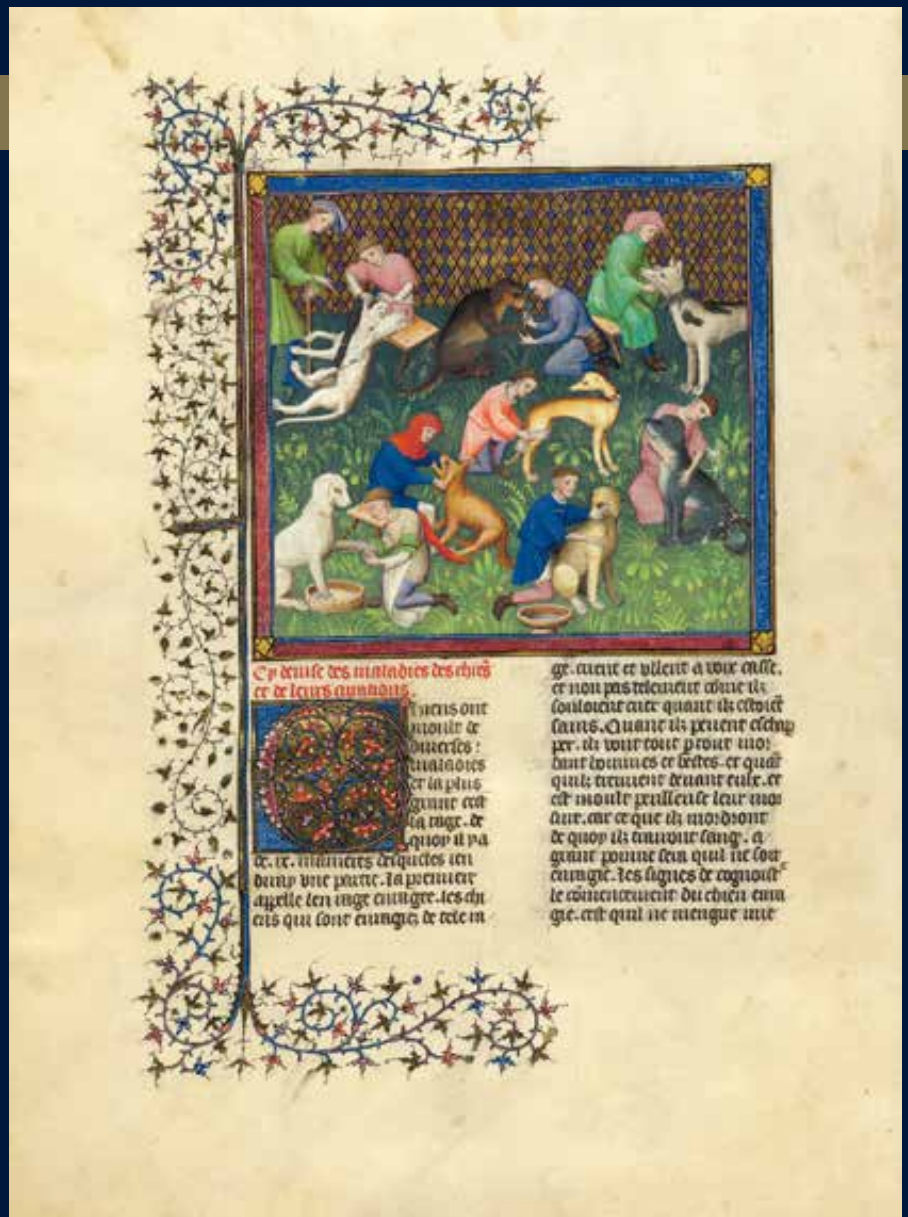 Cy deuise des maladies des chiẽs
et de leurs curacions.
Chiens ont
moult de
diuerses
maladies
et la plus
grant cest
la rage. de
quoy il ya
de .ix. manieres desqueles ien
diray vne partie. la premiere
appelle len rage enragee. les chi
ens qui sont enragiez de tele ra
ge. crient et vllent a voix casse.
et non pas telement cõme ilz
souloient crier quant ilz estoiẽt
sains. Quant ilz peuent eschap
per. ilz vont tout partout mor
dant hommes et bestes. et quãt
quilz treuuent deuant eulx. et
est moult perilleuse leur mor
sure. car ce que ilz mordront
de quoy ilz trairont sang. a
grant poinne sera quil ne soit
enragie. les signes de cognoist̾
le cõmencement du chien enra
gie. cest quil ne mengue mie